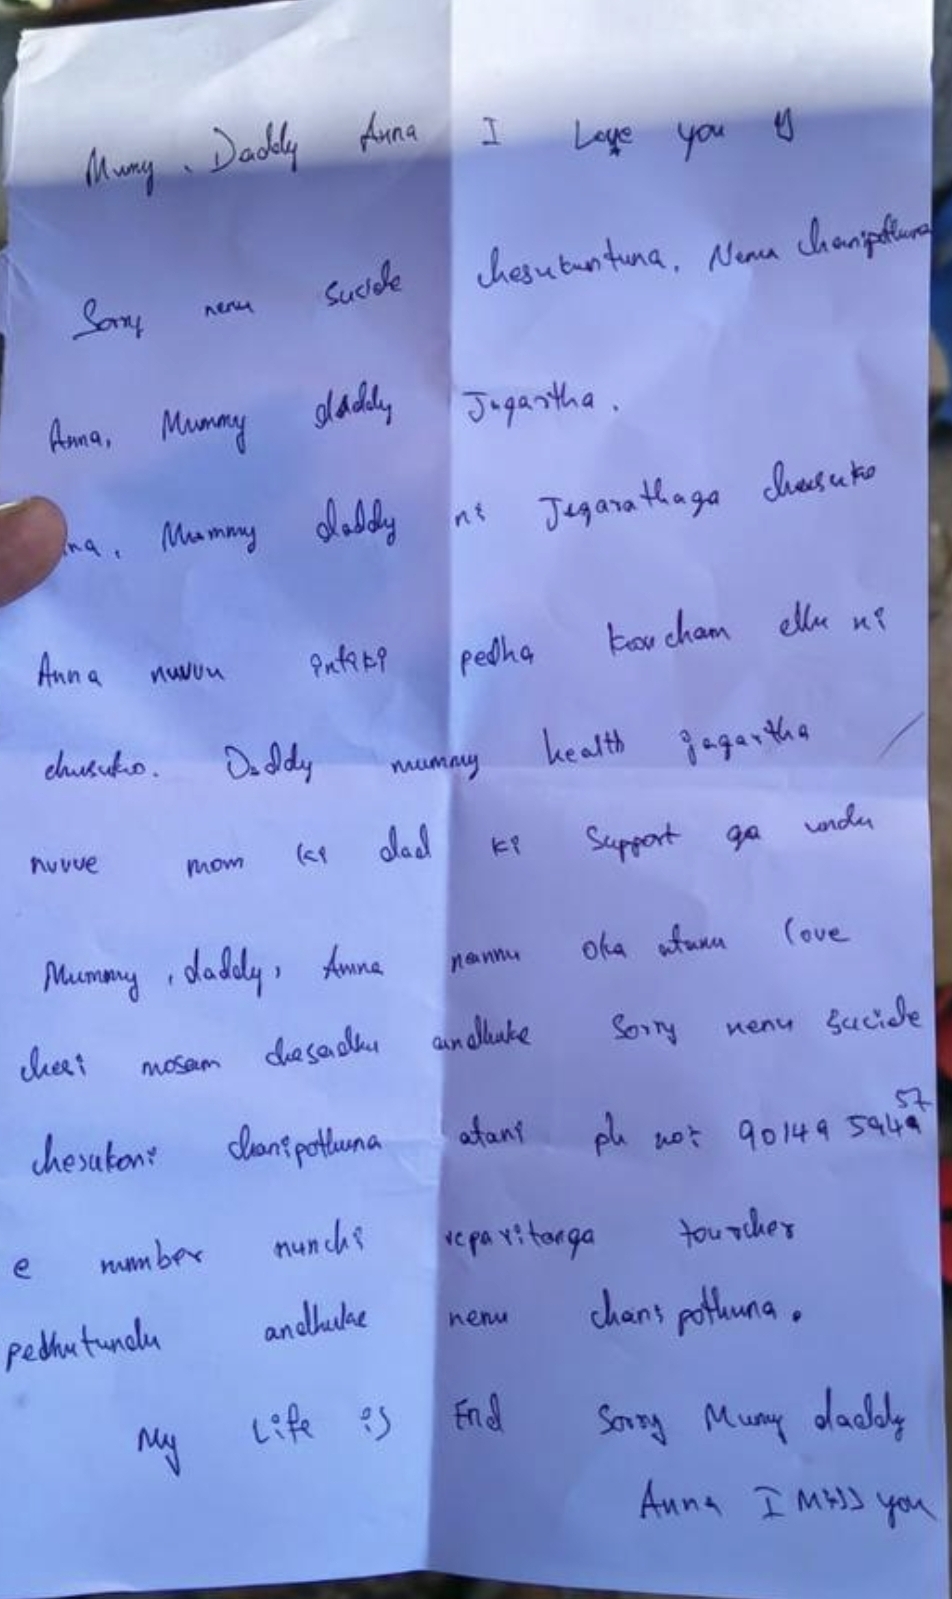 Mumy, Daddy Anna I Love you
Sorry nenu sucide chesukuntuna. Nenu chanipothuna
Anna, Mummy daddy Jagartha.
Mummy daddy ni Jegarathaga chusuko
Anna nuvuu intiki pedha koucham ellu ni
chusuko. Daddy mummy health jagartha
nuvue mom ki dad ki Support ga undu
Mummy, daddy, Anna nannu oka atanu love
chesi mosam chesadhu andhuke Sorry nenu sucide
chesukoni chanipothuna atani ph no:
e number nunchi veparitanga tourcher
pedhutundu andhuke nenu chanipothuna.
My Life is End Sorry Mumy daddy
Anna I Miss you